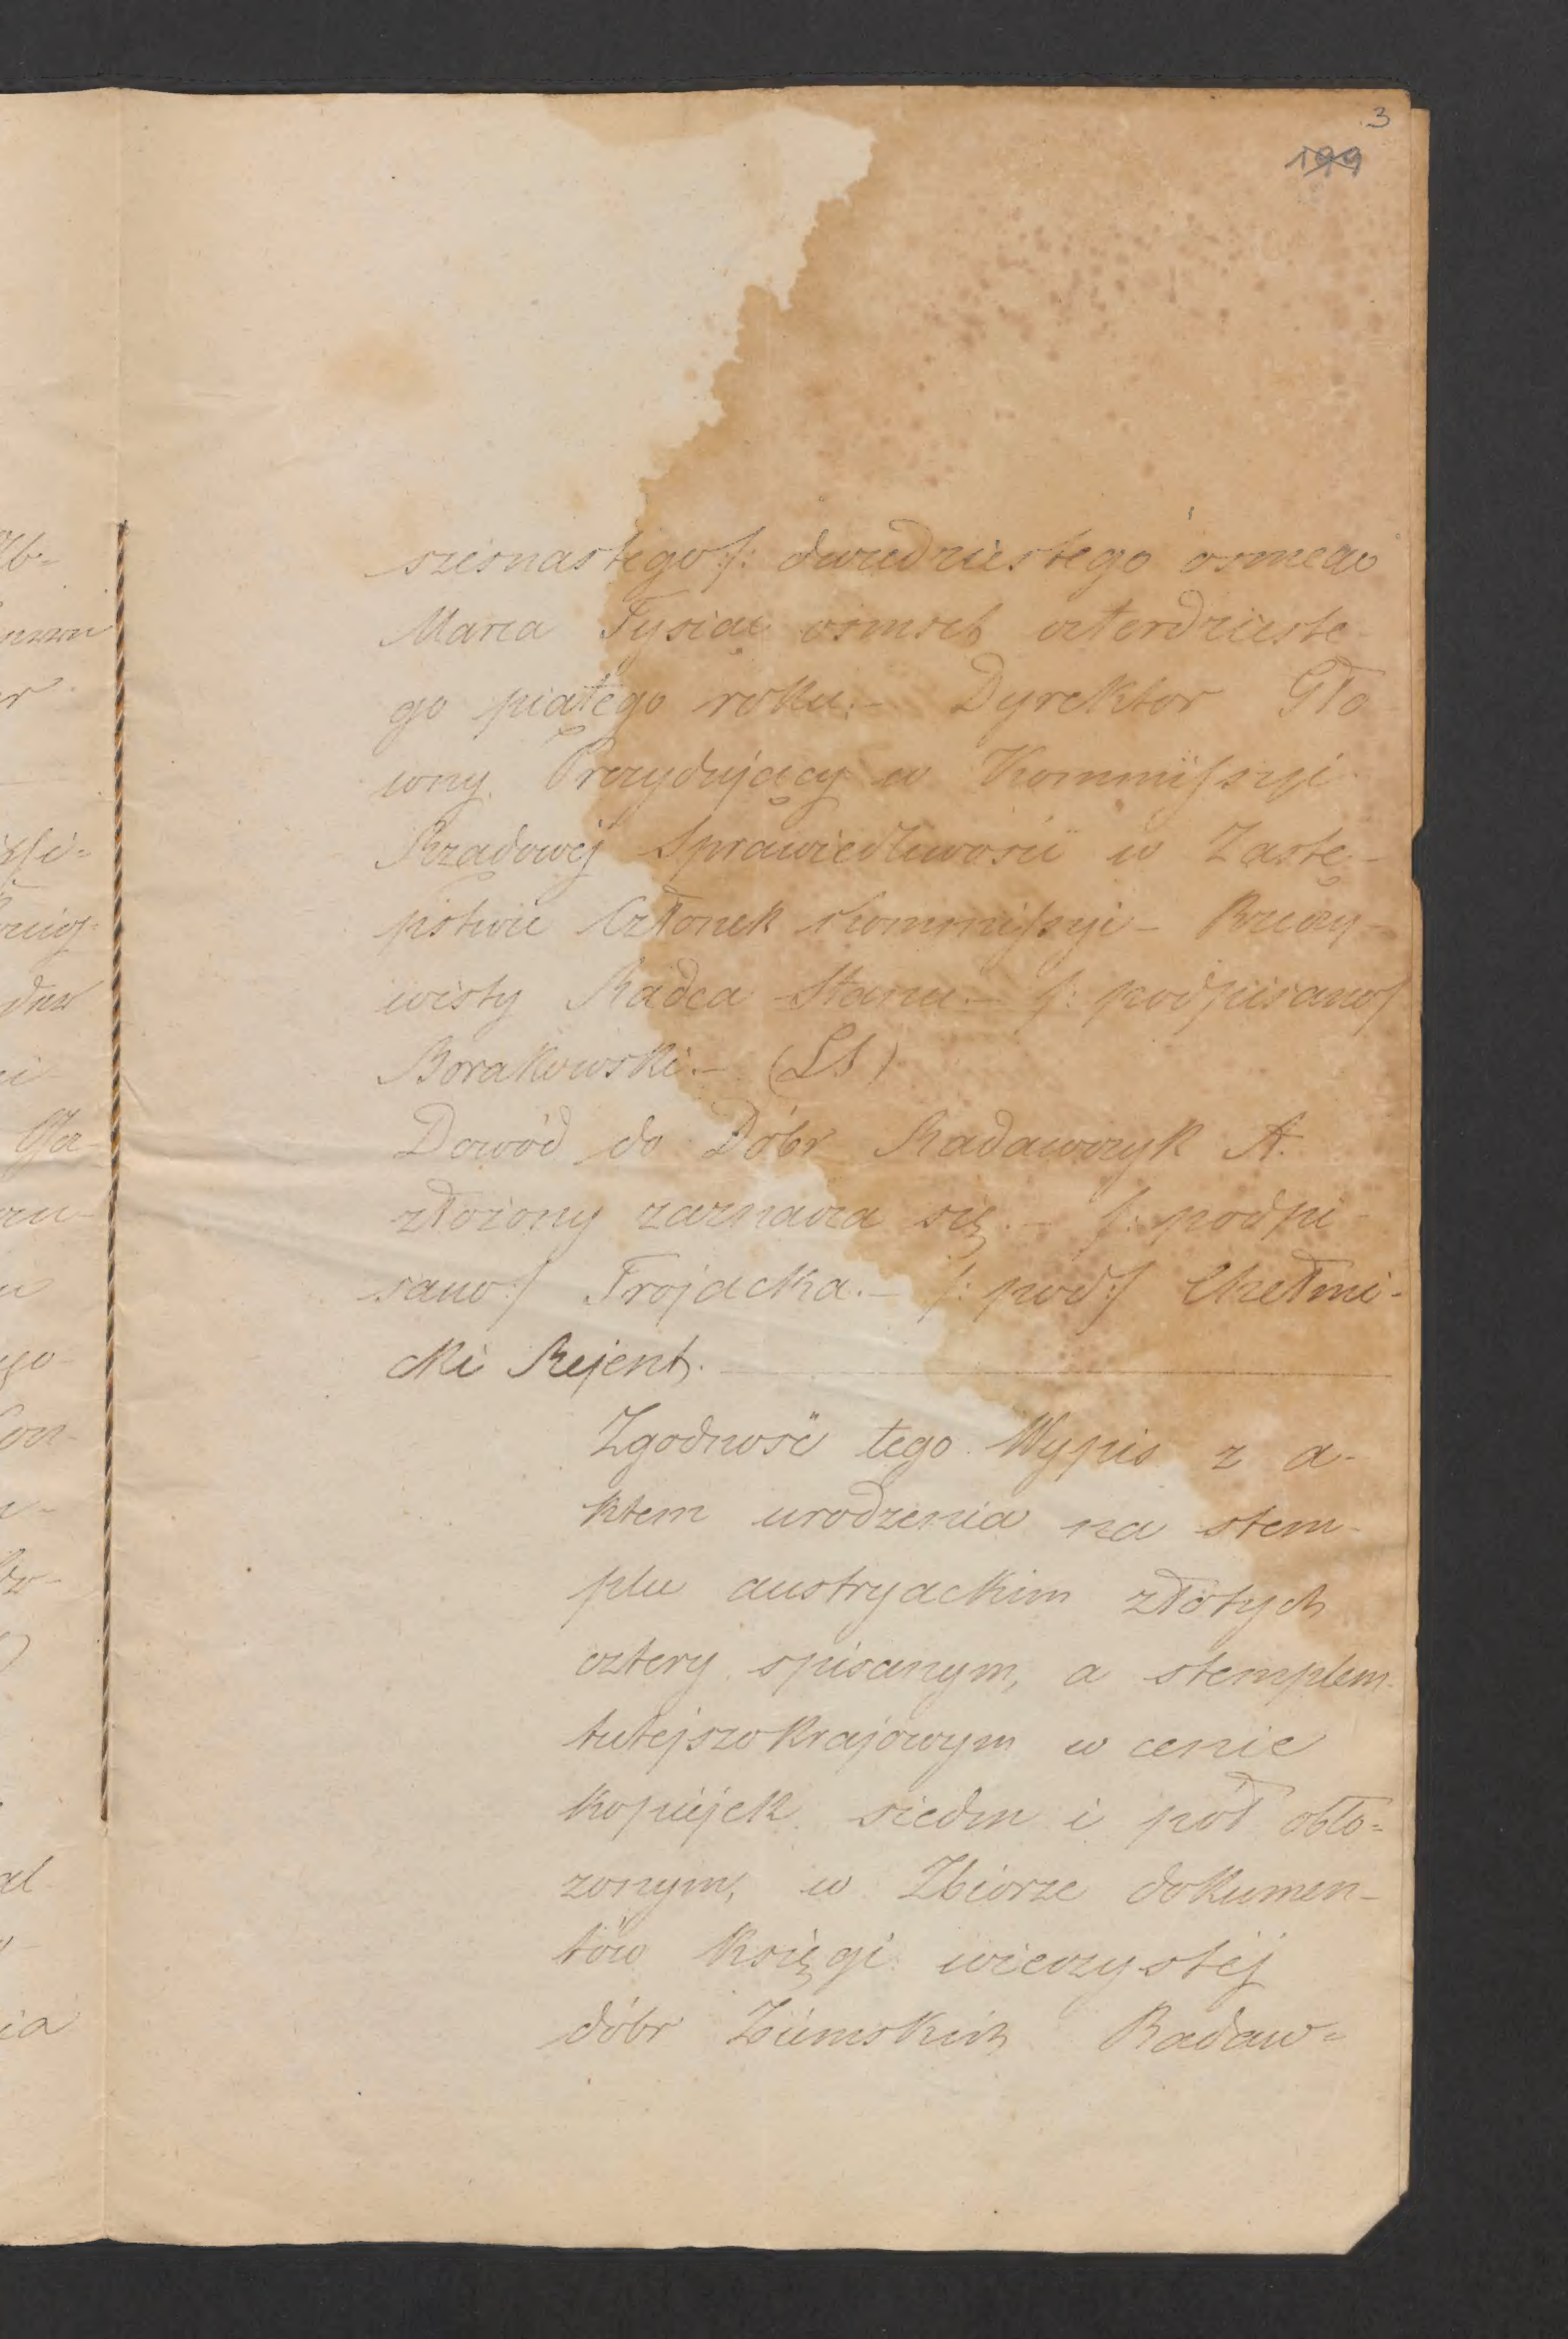 3
199
szesnastego/: dwudziestego ósmego
Marca Tysiąc ośmset czterdzieste
go piątego roku.– Dyrektor Głó
wny Prezydujący w Kommissyi
Rządowéj Sprawiedliwości w Zastę–
pstwie Członek Kommissyi – Rzeczy–
wisty Radca Stanu.– /: podpisano/
Borakowski.– (LS)
Dowód do Dóbr Radawczyk A.
złożony zaznacza się.– /: podpi
sano:/ Trojacka.– /: pod:/ Chełmi–
cki Rejent.
Zgodność tego Wypis z a–
ktem urodzenia na stem–
plu austryackim złotych
cztery spisanym, a stemplem
tutejszokrajowym w cenie
kopiejek siedm i pół obło=
żonym, w Zbiorze dokumen–
tów księgi wieczystéj
dóbr Ziemskich Radaw=